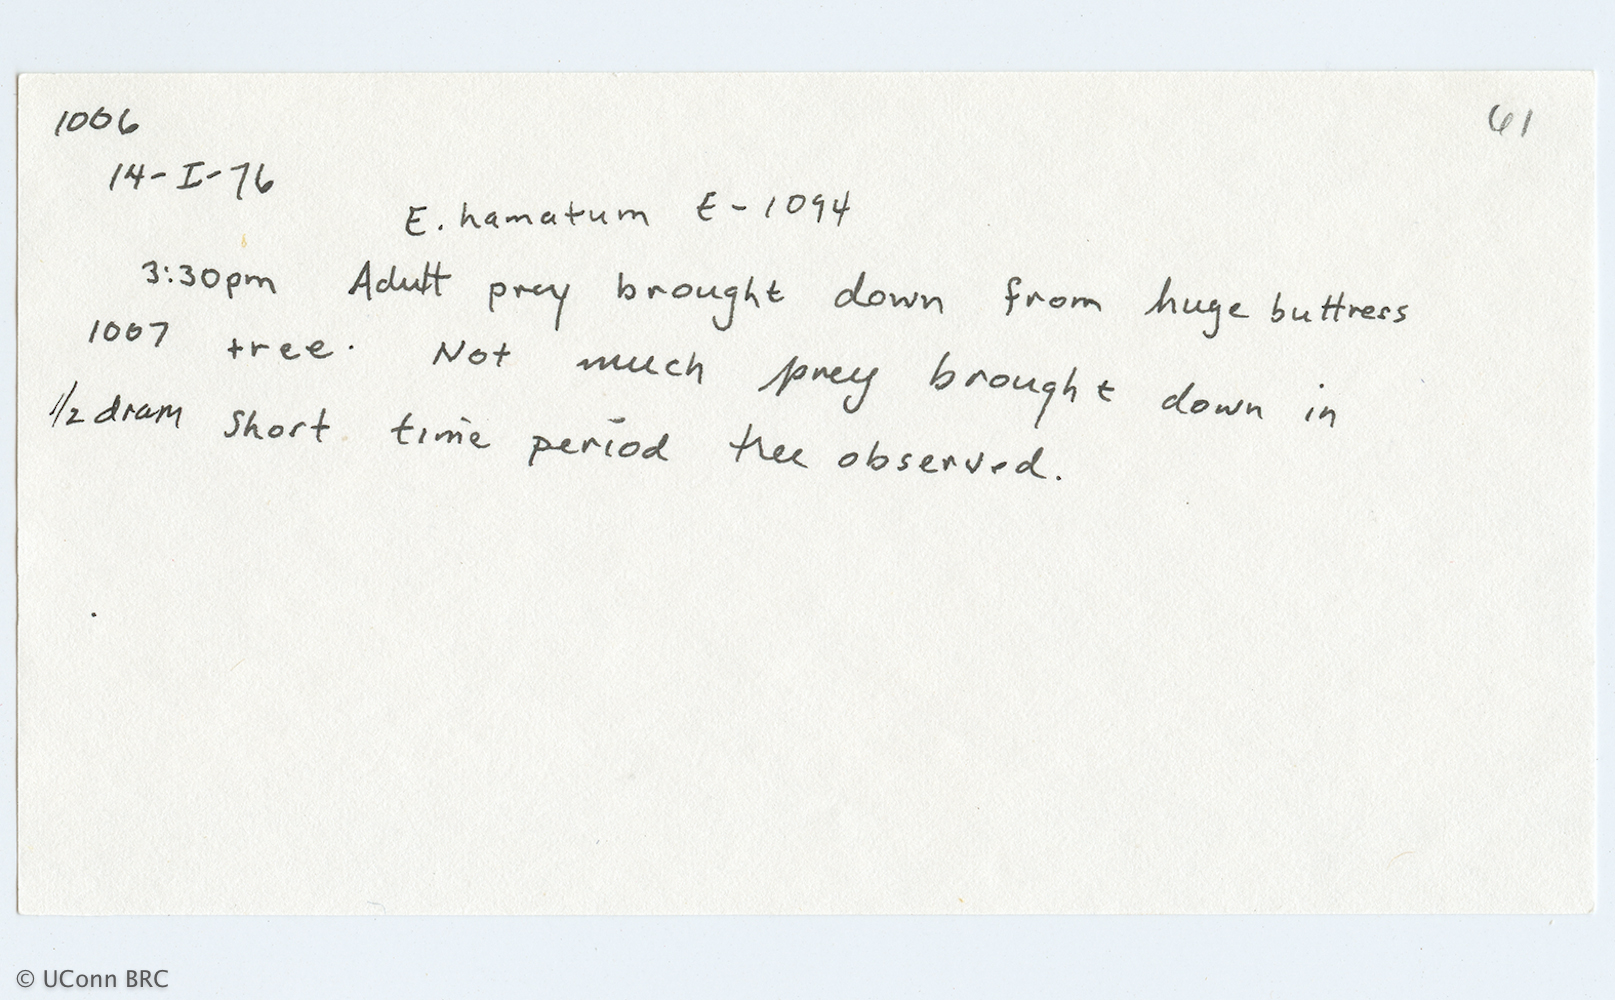 1006
61
14-I-76
E. hamatum E-1094
3:30pm Adult prey brought down from huge buttress
1007 tree. Not much prey brought down in
1/2 dram short time period tree observed.
© UConn BRC